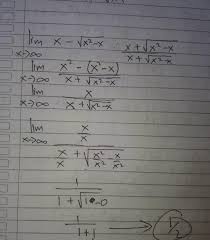 lim x→∞ x - √(x²-x) · (x + √(x²-x))/(x + √(x²-x))
lim x→∞ (x² - (x²-x))/(x + √(x²-x))
lim x→∞ x/(x + √(x²-x))
lim x→∞ (x/x)/(x/x + √(x²/x² - x/x²))
1/(1 + √(1-0))
1/(1+1) → 1/2